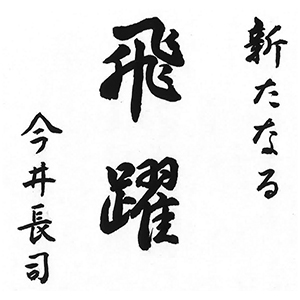 新たなる
飛躍
今井長司